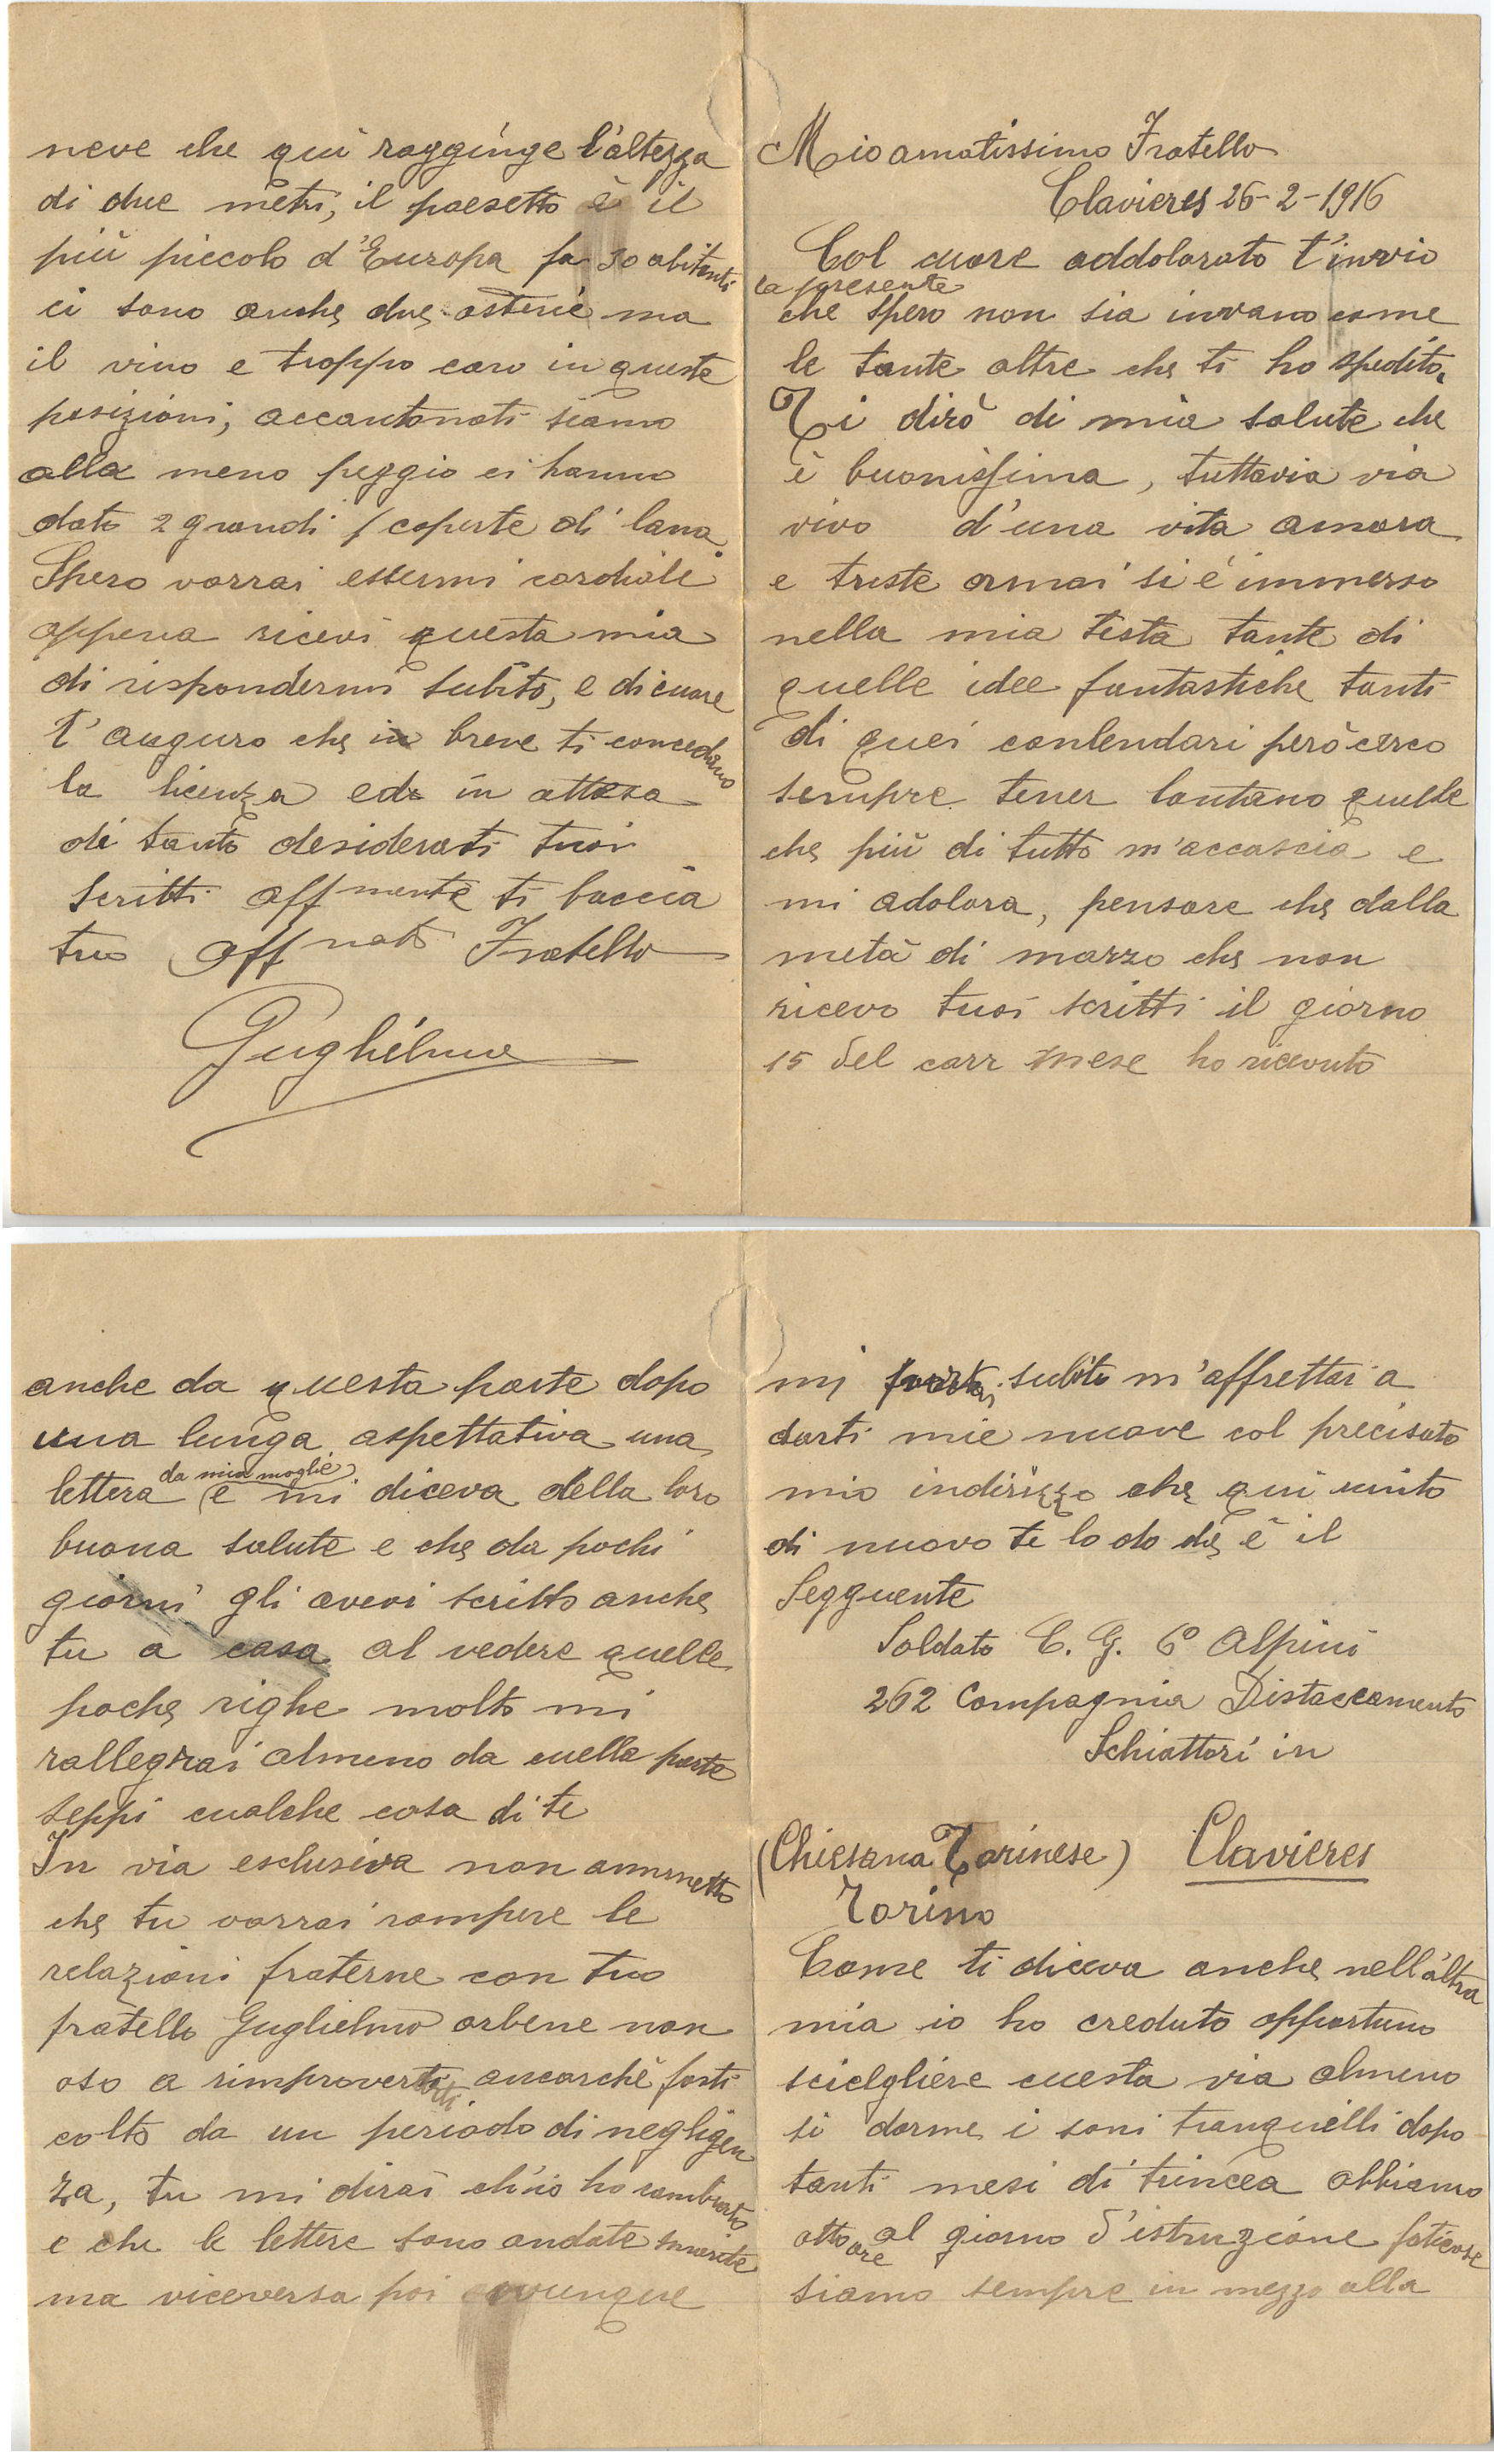 Mio amatissimo Fratello
Clavieres 26-2-1916
Col cuore addolorato t'invio
la presente
che spero non sia invano come
le tante altre che ti ho spedito.
Ti dirò di mia salute che
è buonissima, tuttavia via
vivo d'una vita amara
e triste ormai si é immerso
nella mia testa tante di
quelle idee fantastiche tanti
di quei conlendari però cerco
sempre tener lontano quelle
che più di tutto m'accascia e
mi adolora, pensare che dalla
metà di marzo che non
ricevo tuoi scritti il giorno
15 del corr mese ho ricevuto
anche da questa parte dopo
una lunga aspettativa una
lettera da mia moglie e mi diceva della loro
buona salute e che da pochi
giorni gli avevi scritto anche
tu a casa al vedere quelle
poche righe molto mi
rallegrai almeno da cuella parte
seppi cualche cosa di te
In via esclusiva non ammetto
che tu vorrai rompere le
relazioni fraterne con tuo
fratello Guglielmo orbene non
oso a rimproverarti ancorchè fosti
colto da un periodo di negligen
za, tu mi dirai ch'io ho cambiato
e che le lettere sono andate smarite
ma viceversa poi ovunque
mi portai subito m'affrettai a
darti mie nuove col precisato
mio indirizzo che qui unito
di nuovo te lo do che è il
Segguente
Soldato C. G. 6° Alpini
262 Compagnia Distaccamento
Schiattori in
(Chiesana Torinese) Clavieres
Torino
Come ti diceva anche nell'altra
mia io ho creduto opportuno
scielgliere cuesta via almeno
si dorme i soni tranquilli dopo
tanti mesi di trincea abbiamo
otto ore al giorno d'istruzione faticose
siamo sempre in mezzo alla
neve che qui raggiunge l'altezza
di due metri, il paesetto è il
più piccolo d'Europa fa 30 abitanti
ci sono anche due osterie ma
il vino e troppo caro in queste
posizioni, accantonati siamo
alla meno peggio ci hanno
dato 2 grandi coperte di lana.
Spero vorrai essermi cordiale
appena ricevi questa mia
di rispondermi subito, e di cuore
t'auguro che in breve ti concedano
la licenza ed in attesa
di tanto desiderati tuoi
scritti affmente ti baccia
tuo affnato Fratello
Guglielmo